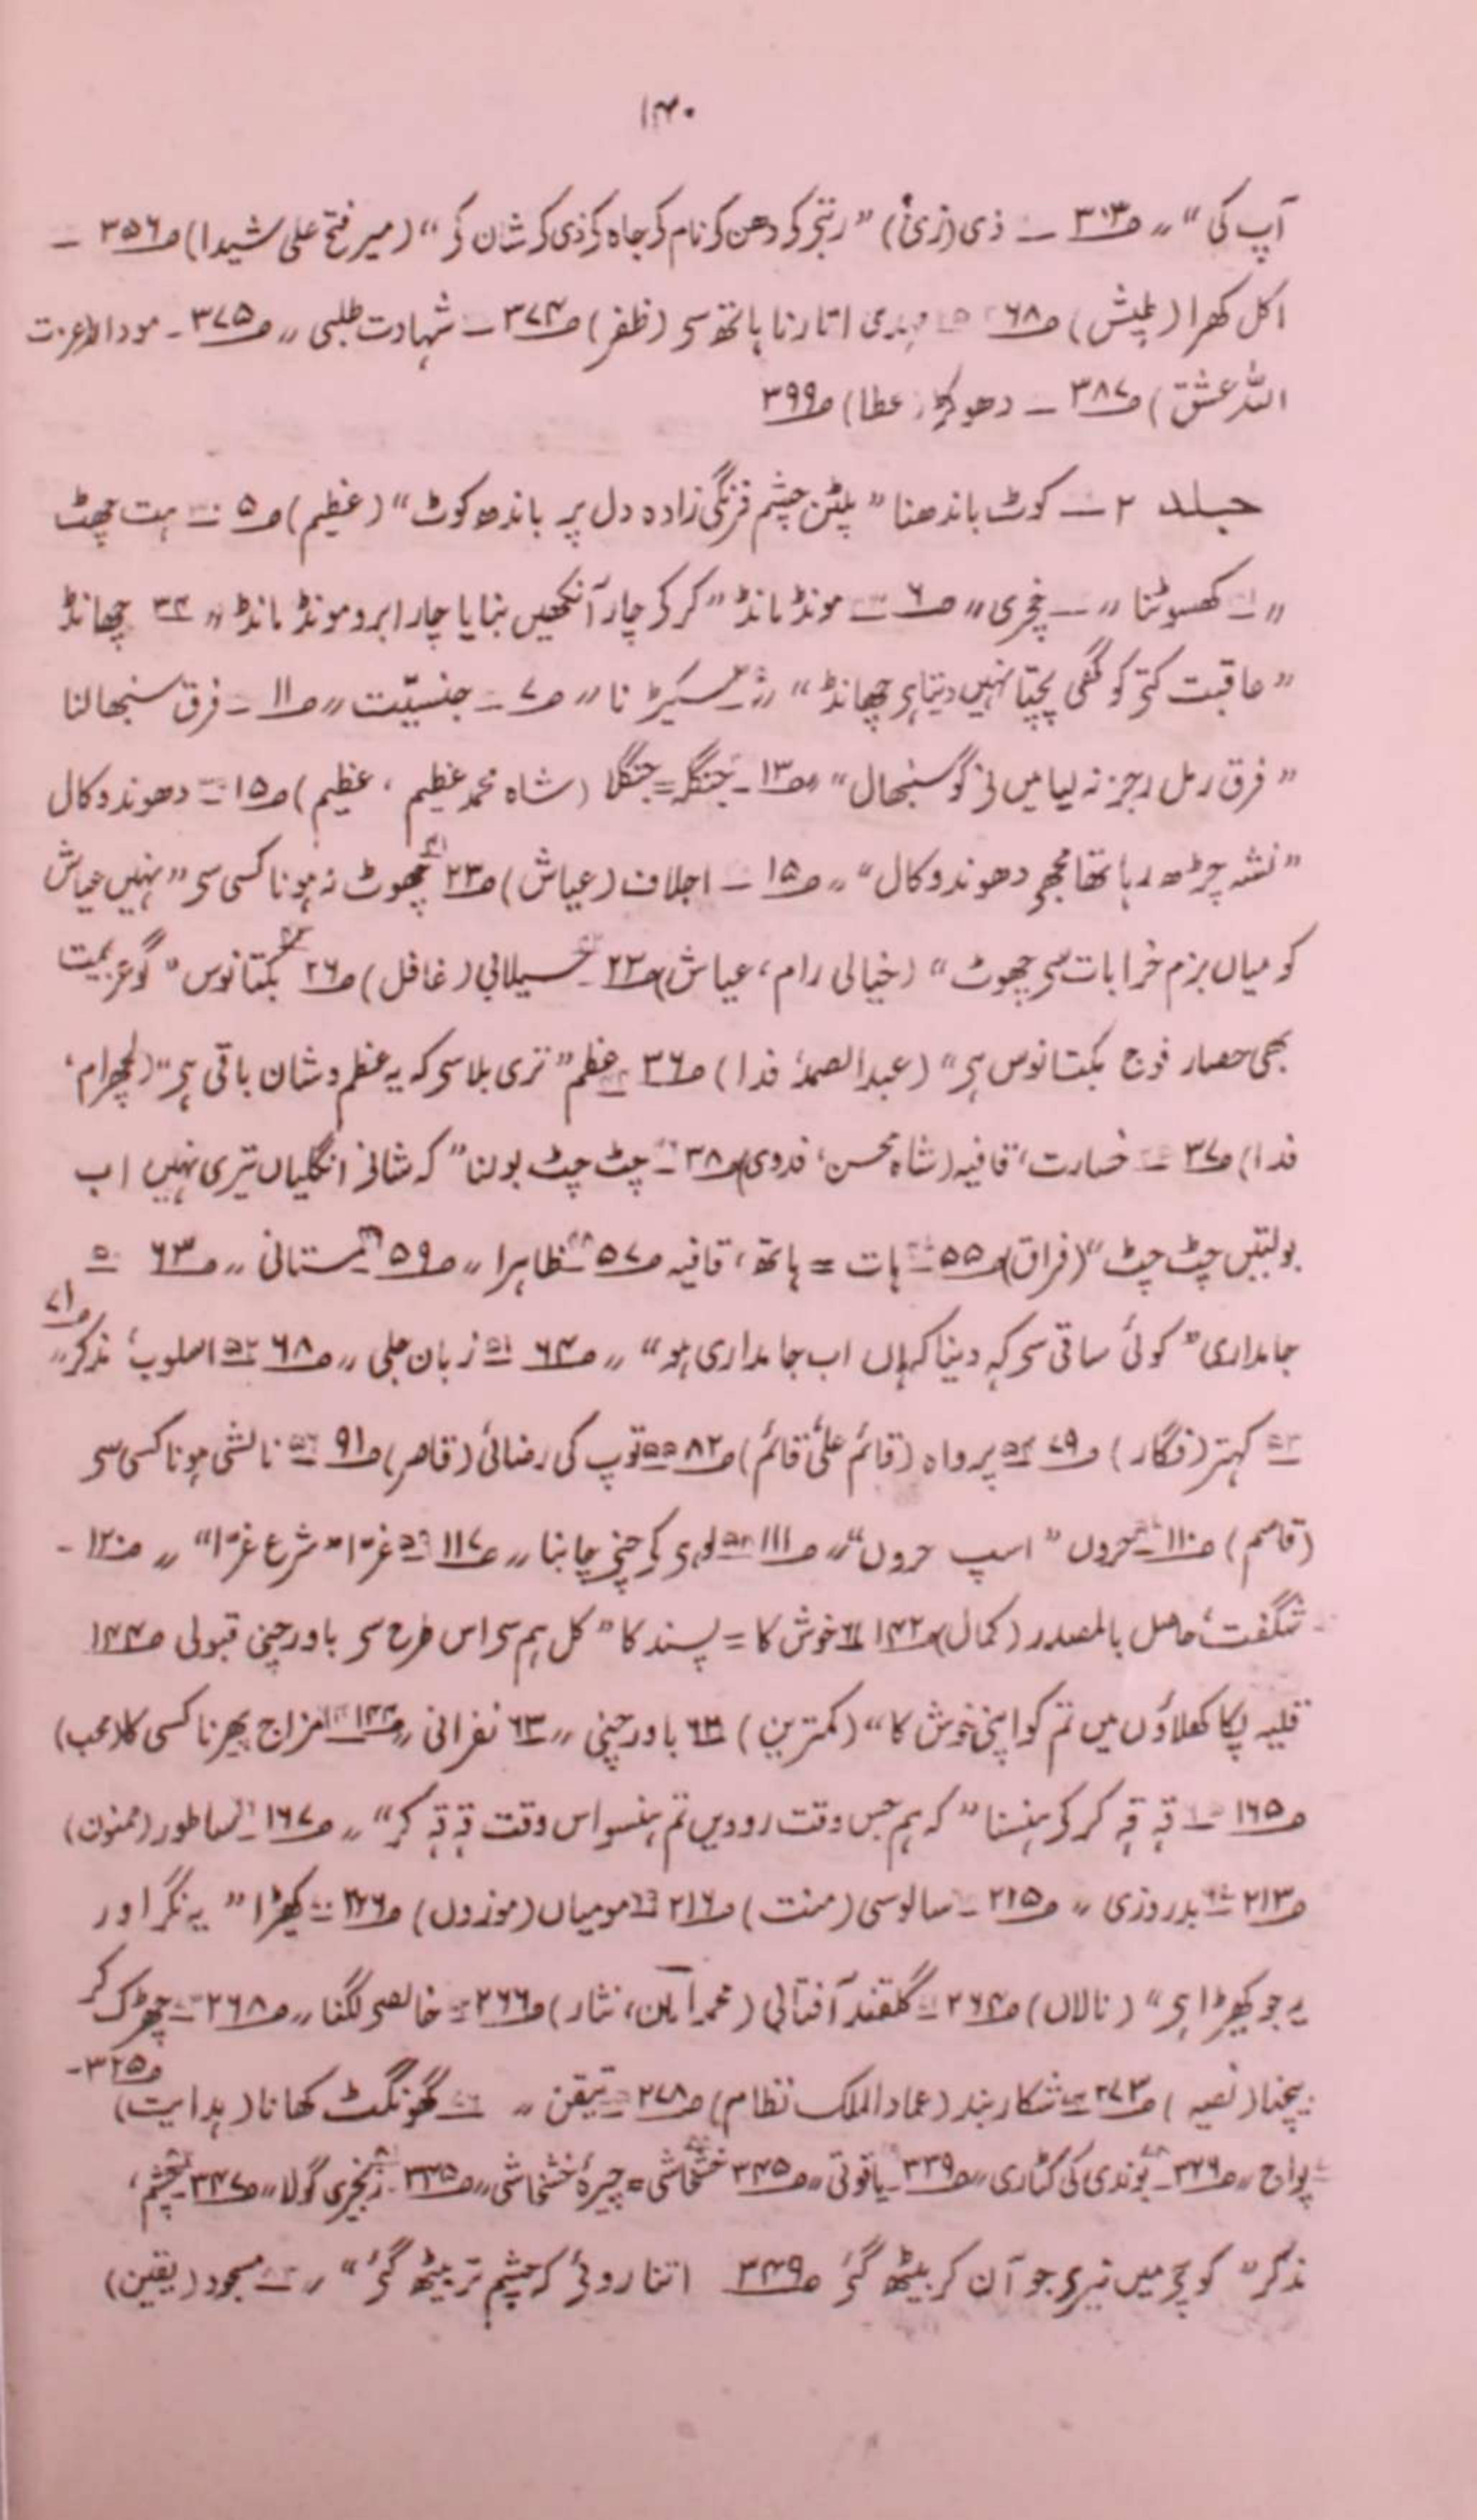 ۱۴۰
آپ کی“ 〃 ص۳۰۳ ۔ ذی (زیٔ) ”رتبے کے دھن کے نام کے جاہ کے ذی کے شان کے“ (میر فتح علی شیدا) ص۳۵۶ ۔
اکل کھرا (طپش) ص۶۸ اتارنا ہاتھ سے (ظفر) ص۳۷۴ ۔ شہادت طلبی 〃 ص۳۷۵ ۔
اللہ عشق) ص۳۸۷ ۔ (عطا) ص۳۹۹
جلد ۲ ۔ کوٹ باندھنا ”پلٹن چشم فرنگی زادہ دل پر باندھ کوٹ“ (عظیم) ص۵ ۔ ہت چھٹ
〃 ۔ کھسوٹنا 〃 ۔ خچری 〃 ص۶ ۔ مونڈ مانڈ ”کر کے چار آنکھیں بنایا چار ابرو مونڈ مانڈ“ 〃 چھانڈ
”عاقبت کتے کو گھی پچتا نہیں دیتا ہے چھانڈ“ 〃 سکیڑنا 〃 ص۷ ۔ جنسیّت 〃 ص۱۱ ۔ فرق سنبھالنا
”فرق رمل رجز نہ لیا میں نے گو سنبھال“ 〃 ص۱۳ ۔ جنگلہ = جنگلا (شاہ محمد عظیم ، عظیم) ص۱۵ ۔ دھوندوکال
”نشہ چڑھ رہا تھا مجھے دھوندوکال“ 〃 ص۱۵ ۔ اجلاف (عیاش) ص۲۳ چھوٹ نہ ہونا کسی سے ”نہیں عیاش
کو میاں بزم خرابات سے چھوٹ“ (خیالی رام، عیاش) ص۲۳ ۔ سیلانی (غافل) ص۲۶ بکتانوس ”گو عزیمت
بھی حصار فوج بکتانوس ہے“ (عبدالصمد فدا) ص۳۶ عظم ”تری بلا سے کہ یہ عظم و شان باقی ہے“ (لچھرام،
فدا) ص۳۷ ۔ خسارت، قافیہ (شاہ محسن، فدوی) ص۳۸ ۔ چٹ چٹ بولنا ”کہ شانے انگلیاں تیری نہیں اب
بولتیں چٹ چٹ“ (فراق) ص۵۵ ۔ ہات = ہاتھ، قافیہ ص۵۷ ظاہرا 〃 ص۵۹ مستانی 〃 ص۶۳ ۵۰
جامداری ”کوئی ساقی سے کہہ دینا کہاں اب جامداری ہو“ 〃 ص۶۴ ۵۱ زبان جلی 〃 ص۶۸ ۵۲ اسلوب، مذکر 〃 ص۷۱
۵۳ کہتر (فگار) ص۷۹ ۵۴ پرواہ (قائم علی قائم) ص۸۲ ۵۵ توپ کی رضائی (قاہر) ص۹۱ ۵۶ نالشی ہونا کسی سے
(قاسم) ص۱۱۰ حروں ”اسپ حروں“ 〃 ص۱۱۱ ۵۸ لوہے کے چنے چابنا 〃 ص۱۱۷ ۵۹ غرّا ”شرع غرّا“ 〃 ص۱۲۰ ۔
شگفت، حاصل بالمصدر (کمال) ص۱۴۲ ۶۱ خوش کا = پسند کا ”کل ہم سے اس طرح سے باورچنی قبولی ص۱۴۴
قلیہ پکا کھلاؤں میں تم کو اپنی خوش کا“ (کمترین) ۶۲ باورچنی 〃 ۶۳ نفرانی 〃 ص۱۴۴ مزاج پھرنا کسی کا (محب)
ص۱۶۵ ۔ قہ قہ کر کے ہنسنا ”کہ ہم جس وقت روویں تم ہنسو اس وقت قہ قہ کر“ 〃 ص۱۶۷ ۔ ساطور (ممنون)
ص۲۱۳ ۔ بدروزی 〃 ص۲۱۵ ۔ سالوسی (منت) ص۲۱۶ ۶۹ مومیاں (موزوں) ص۲۲۶ ۔ کھیڑا ”یہ نگر اور
یہ جو کھیڑا ہے“ (نالاں) ص۲۶۴ ۔ گلقند آفتابی (محمد امان، نثار) ص۲۶۶ ۔ خالصے لگنا 〃 ص۲۶۸ ۔ چھڑک کر
بیچنا (نصیر) ص۲۷۳ ۔ شکاربند (عمادالملک نظام) ص۲۷۸ ۔ تیقن 〃 ۔ گھونگٹ کھانا (ہدایت) ص۳۲۵ ۔
پواج 〃 ص۳۲۶ ۔ بوندی کی کٹاری 〃 ص۳۳۹ ۔ یاقوتی 〃 ص۳۴۵ خشخاشی = چیرۂ خشخاشی 〃 ص۳۴۵ ۔ زنجیری گولا 〃 ص۳۴۷ چشم،
مذکر ”کوچے میں تیرے جو آن کر بیٹھ گئے ص۳۴۹ اتنا روئے کہ چشم تر بیٹھ گئے“ 〃 ۔ مسجود (یقین)